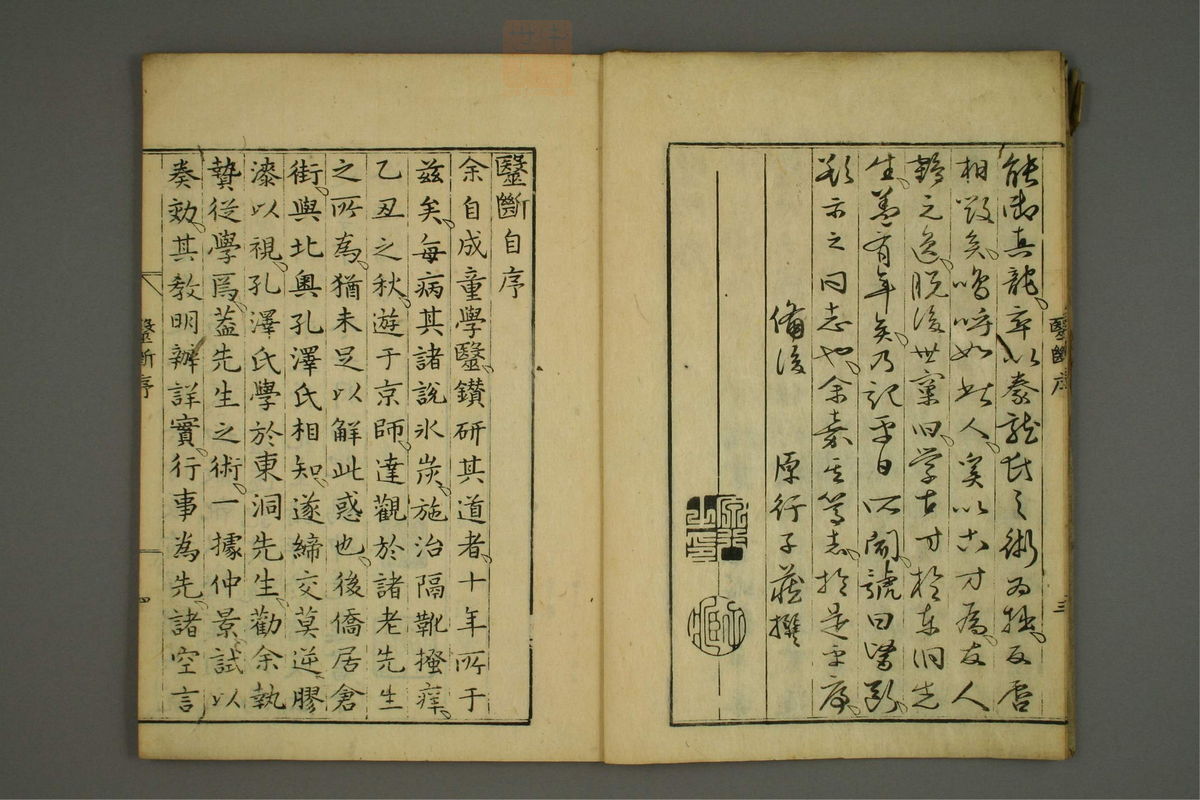 醫斷序
三
能御真龍。卒以豢龍氏之術为拙。反唇
相毀矣。嗚呼如此人。奚以古方為。友人
鶴元逸。脱後世窠臼。学古方於東洞先
生。蓋有年矣。乃記平日所聞。號曰醫斷。
欲示之同志也。余嘉其篤志。於是乎序。
備後 原行子藏撰
醫斷自序
余自成童學醫。鑚研其道者。十年所于
兹矣。每病其諸說氷炭。施治隔靴搔痒。
乙丑之秋。遊于京師。達觀於諸老先生
之所為。猶未足以解此惑也。後僑居倉
街。與北奥孔澤氏相知。遂締交莫逆。膠
漆以視。孔澤氏學於東洞先生。勸余執
贄從學焉。蓋先生之術。一據仲景。試以
奏効。其教明辨詳實。行事為先。諸空言
醫斷序
四